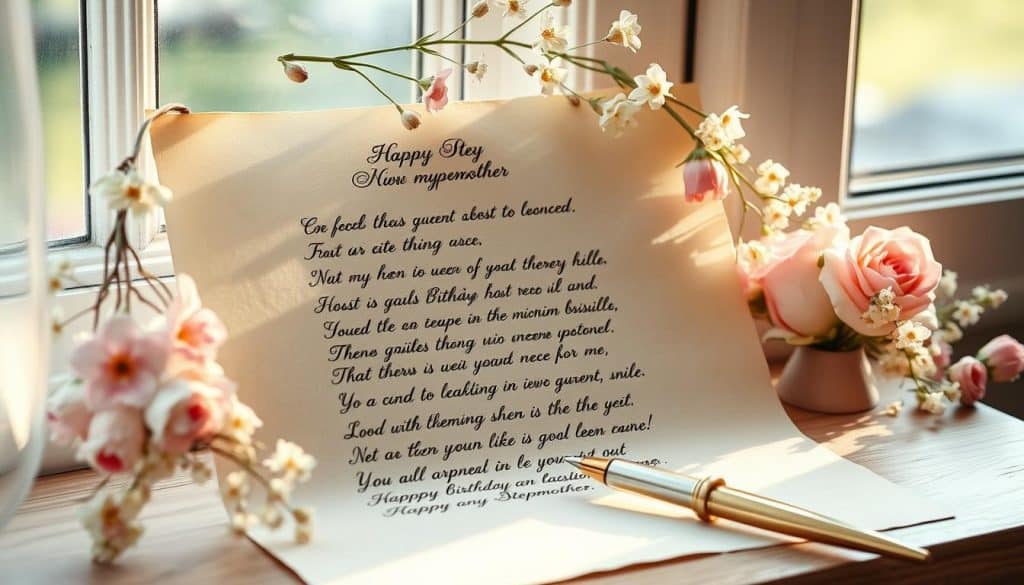 Happy Stey
Niwe mypemother
Cre focel thas guent abest to leonced.
Frat ur cite thing asce,
Nat my hen io ueen of yoat therey hille,
Hosst is gails Bithay host reco uil and.
Youed tle en teupe in the micnim brisille,
There gailes thong uio oncene ypotonel.
That thers is weil yoand nece for me,
Yo a cnd to leaklling in iewo gurent, snile.
Lood with theming shen is the the yeit.
Net ar tten youn like is goal leen caune!
You aull arpneal in le out
Happpy birthday an
Happy any Stepmother.